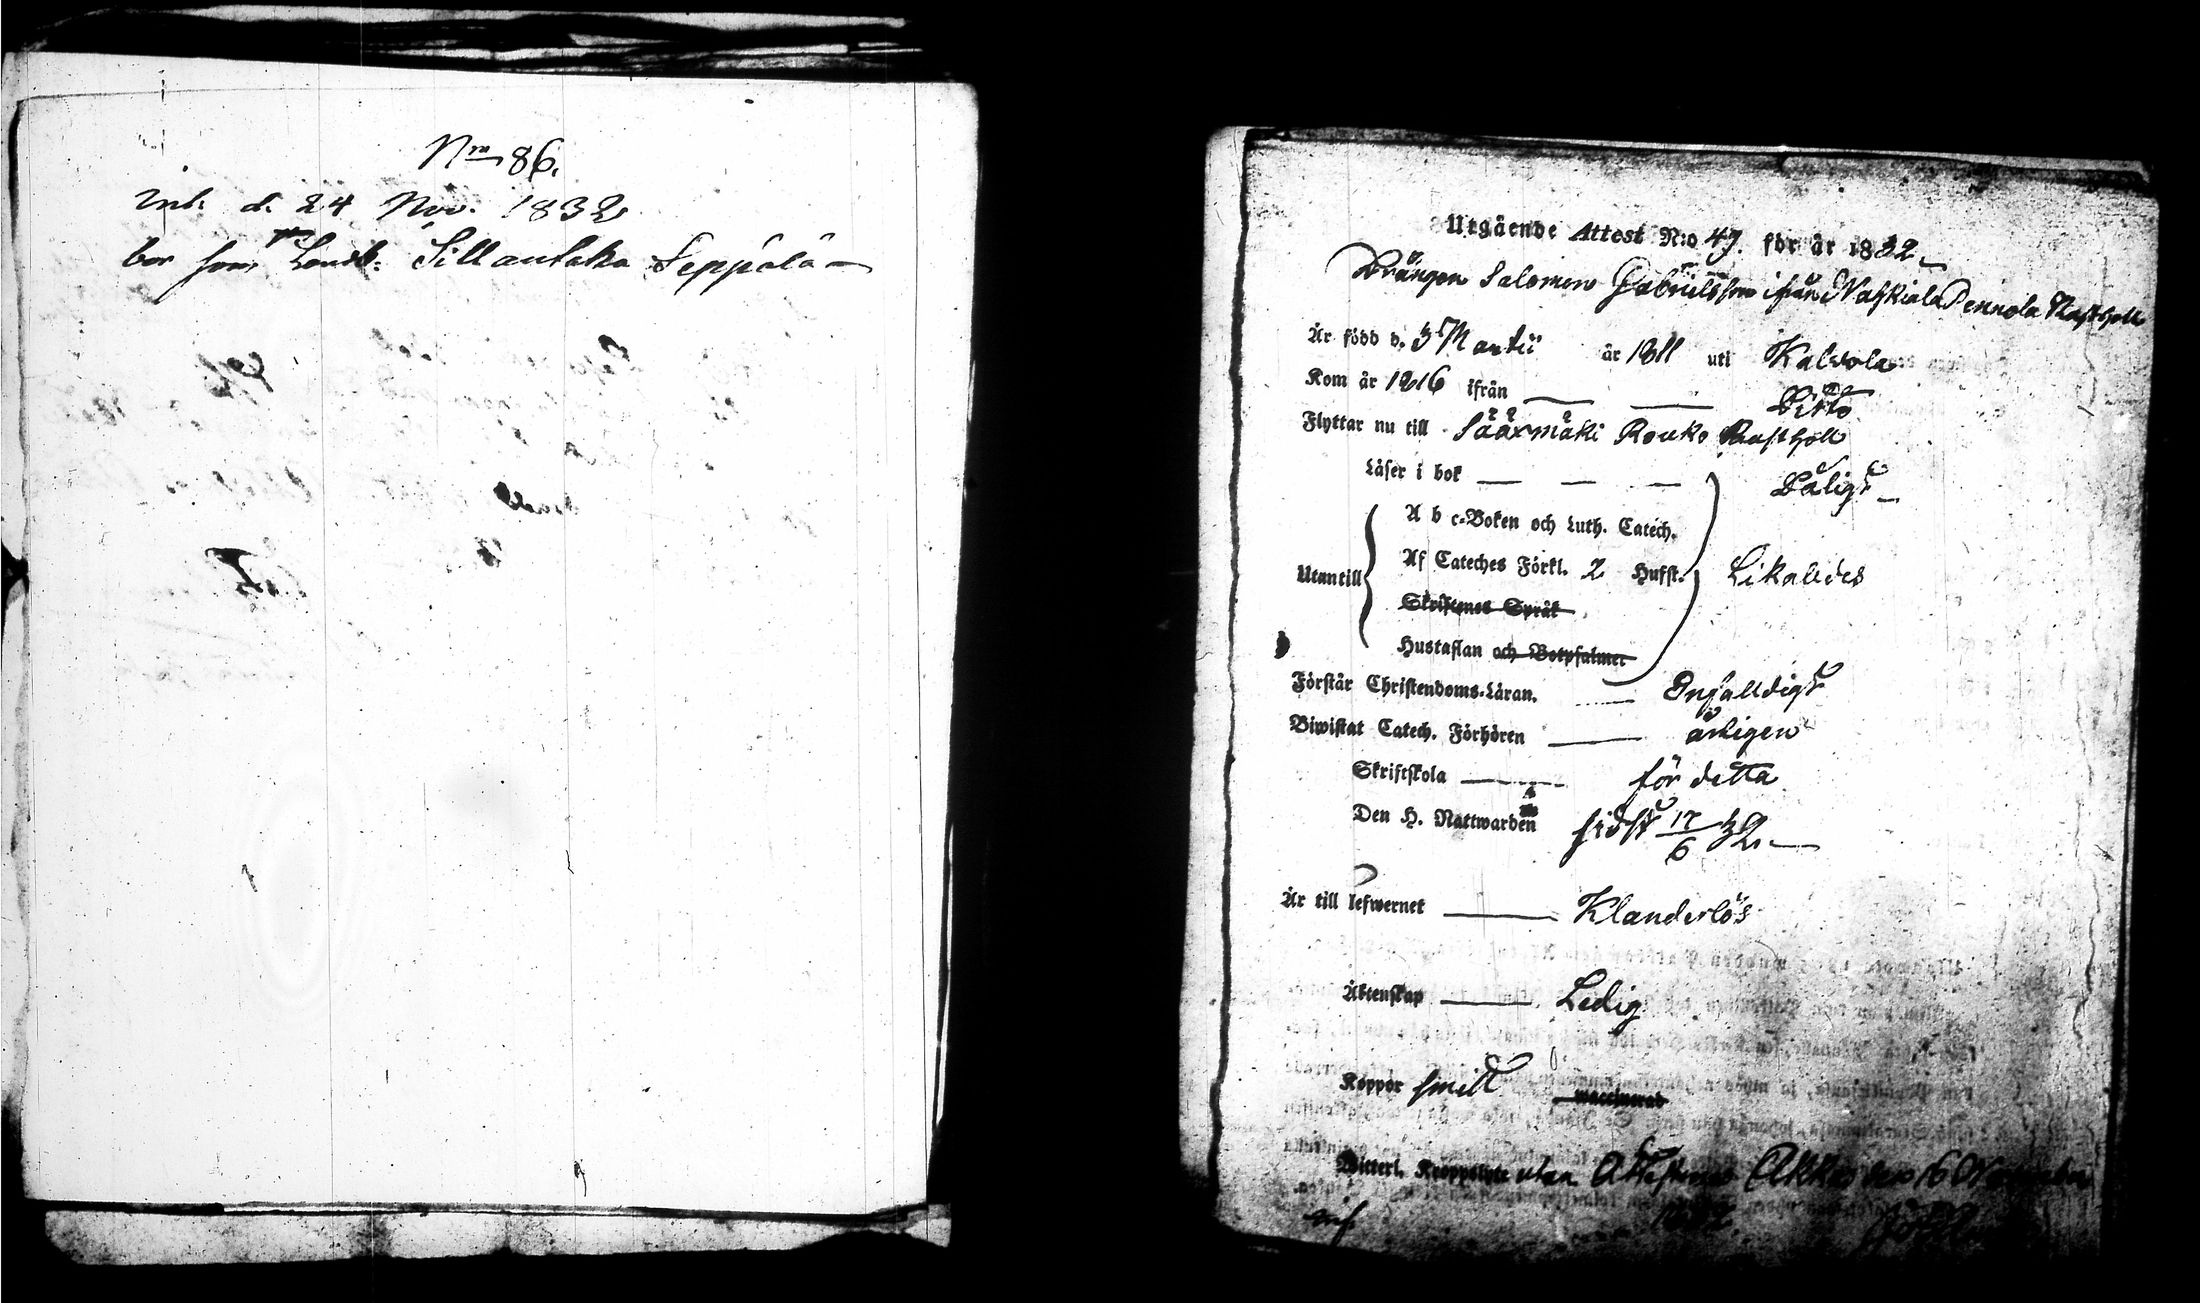 Nro 86.
ink d. 24 Nov. 1832
bor som Landb: Sillantaka Seppälä
Utgående Attest N:o 47. för år 1832
Drängen Salomon Gabrielsson ifrån Nahkiala Pennola Rusthåll
Är född d. 3 Martii år 1811 uti Kalvola
Kom år 1816 ifrån — — Ditto
Flyttar nu till Sääxmäki Rouko Rusthåll
Läser i bok — — — Dåligt
A b c-Boken och Luth. Catech.
Utantill Af Cateches Förkl. 2 Hufst. Likaledes
Skriftenes Språk
Hustaflan och Botpsalmer
Förstår Christendoms-Läran. — Enfalldigt
Biwistat Catech. Förhören — årligen
Skriftskola — för detta
Den H. Nattwarden sidst 17/6 32.
Är till lefwernet — Klanderlös
Äktenskap — Ledig
Koppor smitt waccinerad
Witterl. Kroppslyte utan Akkas den 16 November
1832.